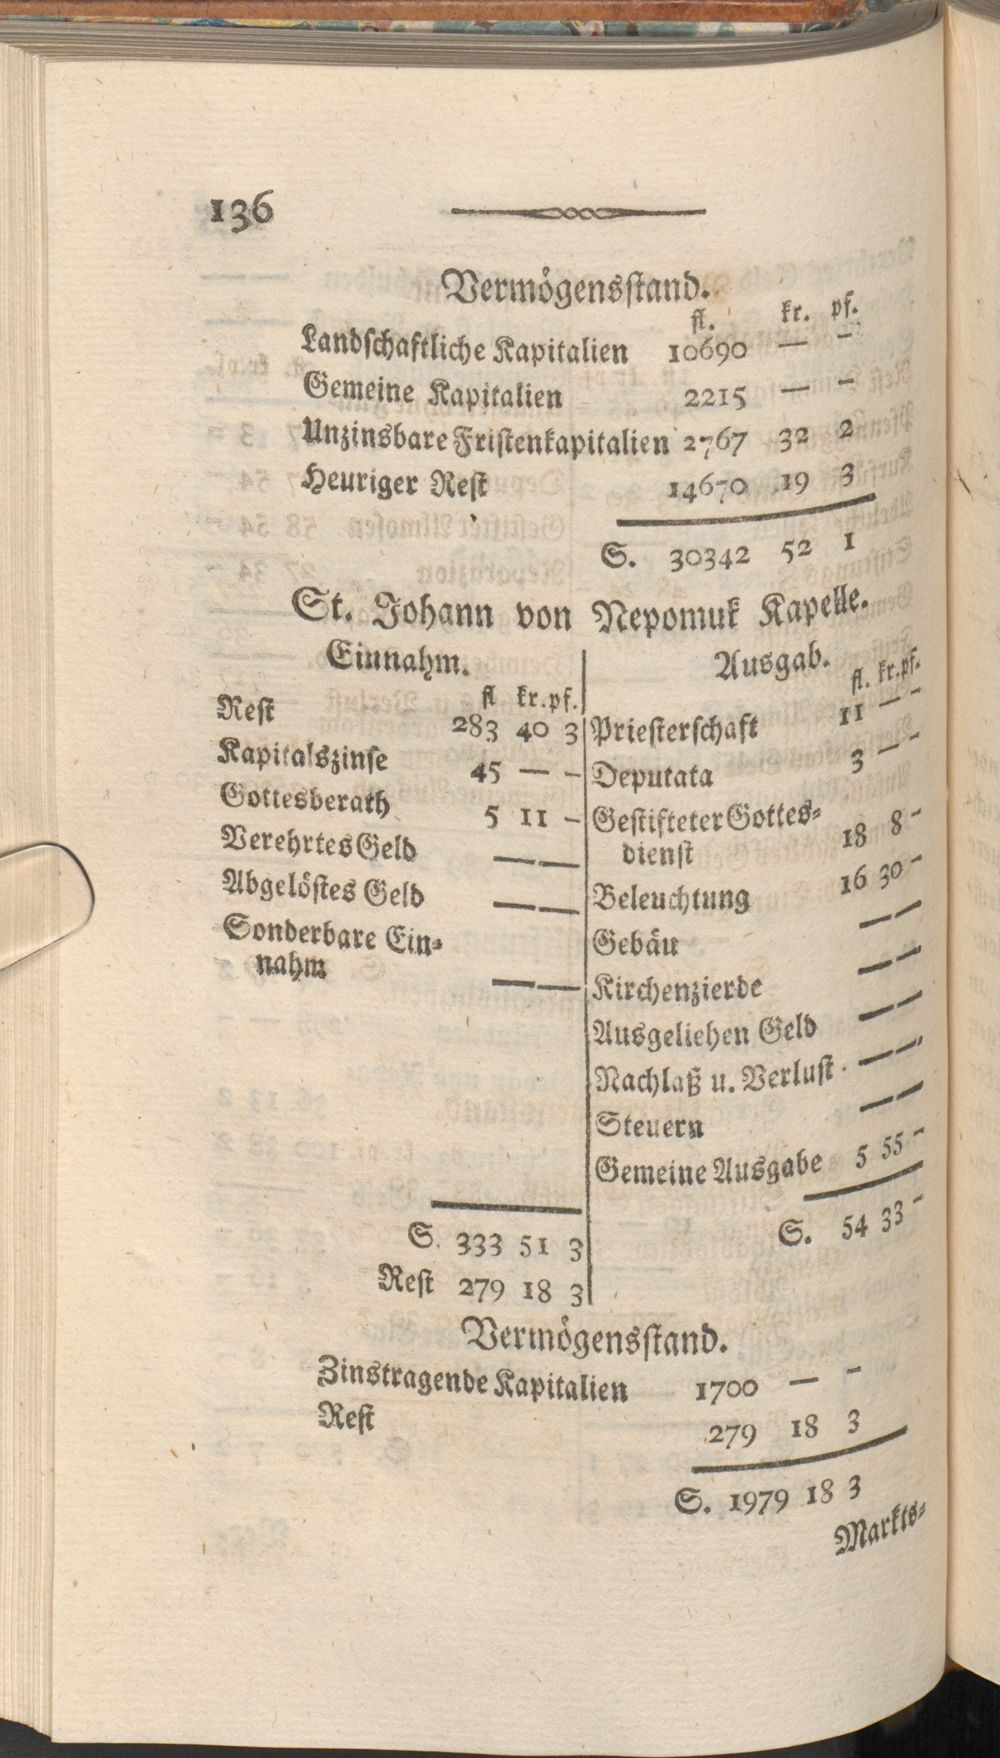 136
Vermögensstand.
fl. kr. pf.
Landschaftliche Kapitalien 10690 — –
Gemeine Kapitalien 2215 — –
Unzinsbare Fristenkapitalien 2767 32 2
Heuriger Rest 14670 19 3
S. 30342 52 1
St. Johann von Nepomuk Kapelle.
Einnahm.
fl kr. pf.
Rest 283 40 3
Kapitalszinse 45 — –
Gottesberath 5 11 –
Verehrtes Geld — —
Abgelöstes Geld — —
Sonderbare Ein-
nahm — —
S. 333 51 3
Rest 279 18 3
Ausgab.
fl. kr. pf.
Priesterschaft 11 — –
Deputata 3 — –
Gestifteter Gottes-
dienst 18 8 –
Beleuchtung 16 30 –
Gebäu — —
Kirchenzierde — —
Ausgeliehen Geld — —
Nachlaß u. Verlust — —
Steuern — —
Gemeine Ausgabe 5 55 –
S. 54 33 –
Vermögensstand.
Zinstragende Kapitalien 1700 — –
Rest 279 18 3
S. 1979 18 3
Markts-